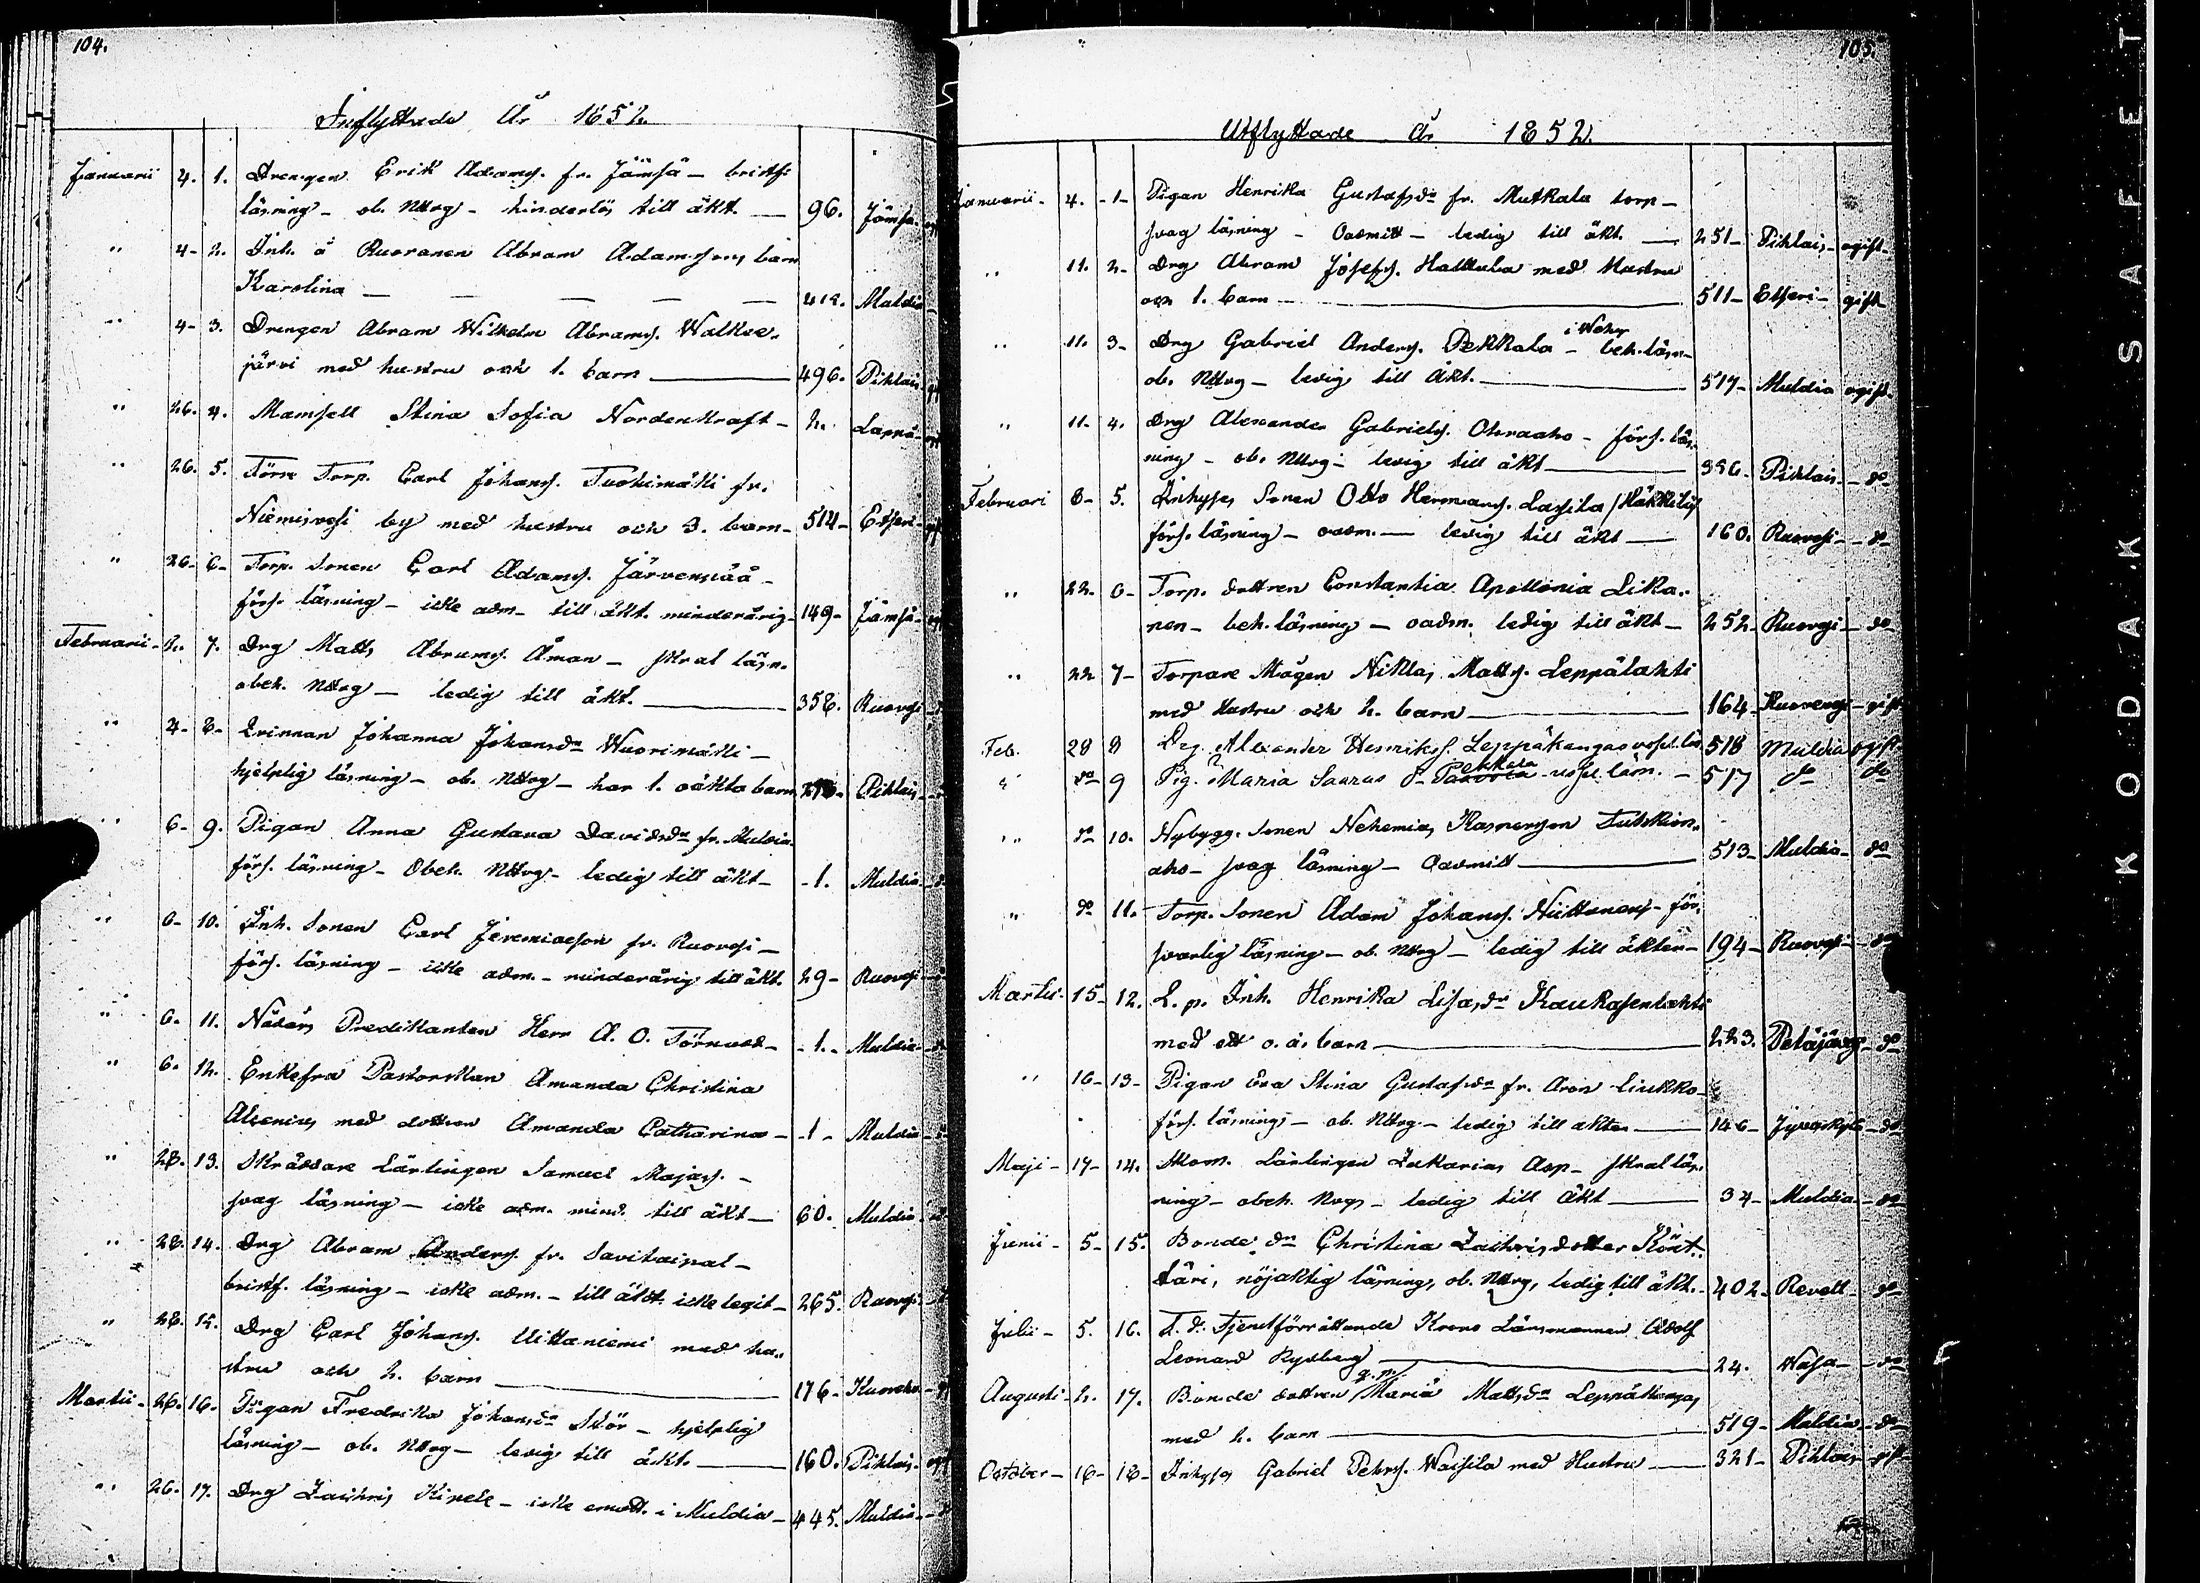 104.
Inflyttade År 1852.
Januarii 4. 1. Drengen Erik Adams. fr. Jämsä - bristf.
läsning - ob. Nttvg - hinderlös till äkt. — 96. Jämsä
" 4- 2. Inh. å Ruoranen Abram Adamssons barn
Karolina — 418. Muldia
" 4- 3. Drengen Abram Wilhelm Abrams. Walkee-
järvi med hustru och 1. barn — 496. Pihlais
" 26. 4. Mamsell Stina Sofia Nordenkraft - 2. Lappa
" 26. 5. Förre Torp. Carl Johans. Tuohimäki fr.
Niemisvesi by med hustru och 3. barn - 514 - Etseri
" 26- 6- Torp. Sonen Carl Adams. Järvenpää -
förs. läsning - icke adm. - till äkt. minderårig - 149 - Jämsä
Februarii - 2. 7. Drg Matts Abrams. Åman - skral läsn.
obeh. Nttvg - ledig till äkt. — 358. Ruovesi
" 4- 8- Qvinnan Johanna Johansdr Wuorimäki -
hjelplig läsning - ob. Nttvg - har 1. oäkta barn Pihlais
" 6- 9. Pigan Anna Gustava Davidsdr fr. Muldia
förs. läsning - Obeh. Nttvg - ledig till äkt - -1. Muldia
" 6- 10. Inh. Sonen Carl Jeremiaeson fr. Ruovesi -
förs. läsning - icke adm. - minderårig till äkt. 29 - Ruovesi
" 6. 11. Nådårs Predikanten Herr A. O. Törnudd - -1. - Muldia
" 6. 12. Enkefru Pastorskan Amanda Christina
Alcenius med dottren Amanda Catharina - -1 - Muldia
" 28. 13. Skräddare Lärlingen Samuel Majass. -
svag läsning - icke adm. mind. till äkt - 60. Muldia
" 28. 14. Drg Abram Anders. fr. Savitaipal -
bristf. läsning - icke adm. - till äkt. icke legit - 265. Ruovesi
" 28. 15. Drg Carl Johans. Uittaniemi med hu-
stru och 2. barn — 176 - Kuorehv.
Martii - 26. 16. Pigan Fredrika Johansdr Stör - hjelplig
läsning - ob. Nttvg - ledig till äkt. — 160. Pihlais.
" 26. 17. Drg Zachris Kipele - icke emott. i Muldia - 445. Muldia
105.
Utflyttade År 1852.
Januarii - 4. -1- Pigan Henrika Gustafsdr fr. Mutkala torp -
svag läsning - Oadmitt - ledig till äkt. — 251 - Pihlais - ogift
" 11. 2- Drg Abram Josefs. Hallkula med Hustru
och 1. barn — 511 - Etseri - gift
" 11. 3- Drg Gabriel Anders. Pekkala - i Wehu beh. läsn -
ob. Nttvg - ledig till äkt. — 517 - Muldia ogift
" 11- 4. Drg Alexander Gabriels. Ohraaho - förs. läs-
ning - ob. Nttvg - ledig till äkt — 386. Pihlais - do
Februari 8- 5. Inhyses Sonen Otto Hermans. Lassila / Häkkilä /
förs. läsning - oadm. — ledig till äkt — 160. Ruovesi - do
" 22- 6- Torp. dottren Constantia Apollonia Lika-
nen - beh. läsning - oadm. ledig till äkt - 252 - Ruovesi - do
" 22 7- Torpare Mågen Niklas Matts. Leppälahti
med Hustru och 2. barn — 164 - Kuorevesi - gift
Feb. 28 8 Drg. Alexander Henrikss. Leppäkangas 518 Muldia ogift
" do 9 Pig. Maria Saurus — 517 do do
" do 10. Nybygg. Sonen Nehemias Kaspersson Tutkion-
aho - svag läsning - Oadmitt — 513 - Muldia - do
" do 11. Torp. Sonen Adam Johans. Niittanaus - för-
svarlig läsning - ob. Nttvg - ledig till äkten - 194 - Ruovesi - do
Martii - 15 - 12. L. p. Inh. Henrika Lisasdr Kaukasenlahti
med ett o. ä. barn — 223. Petäjäves - do
" 16 - 13- Pigan Eva Stina Gustafsdr fr. Aron Liukko -
förs. läsning - ob. Nttvg - ledig till äkten — 146 - Jyväskylä - do
Maji - 17- 14. Skom. Lärlingen Zakarias Asp - skral läs-
ning - obeh. Nvgs - ledig till äkt — 34 - Muldia - do
Junii - 5- 15. Bonde dr Christina Zachrisdotter Könt-
täri, nöjaktig läsning, ob. Nttvg, ledig till äkt. - 402 - Revell - do
Julii - 5. 16. T. d. Tjenstförrättande Krono Länsmannen Adolf
Leonard Rydberg — 24. Wasa - do
Augusti - 2. 17. Bonde dottren q.p. Maria Mattsdr Leppäkangas
med 2. barn — 519 - Muldia - do
October - 16 - 18- Inhyses Gabriel Pehrs. Waissila med Hustru — 321 - Pihlais - gift
KODAK SAFET